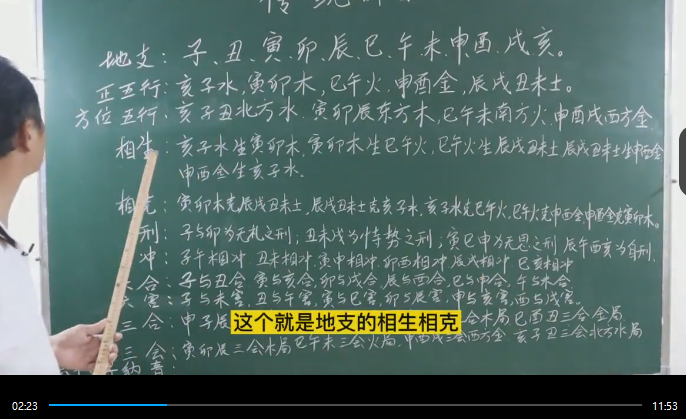 地支：子、丑、寅、卯、辰、巳、午、未、申、酉、戌、亥。
正五行：亥子水，寅卯木，巳午火，申酉金，辰戌丑未土。
方位五行：亥子丑北方水，寅卯辰东方木，巳午未南方火，申酉戌西方金
相生：亥子水生寅卯木，寅卯木生巳午火，巳午火生辰戌丑未土，辰戌丑未土生申酉金
申酉金生亥子水。
相克：寅卯木克辰戌丑未土，辰戌丑未土克亥子水，亥子水克巳午火，巳午火克申酉金，申酉金克寅卯木。
刑：子与卯为无礼之刑；丑未戌为恃势之刑；寅巳申为无恩之刑 辰午酉亥为自刑.
冲：子午相冲 丑未相冲 寅申相冲 卯酉相冲 辰戌相冲 巳亥相冲
合：子与丑合 寅与亥合，卯与戌合，辰与酉合，巳与申合，午与未合，
害：子与未害，丑与午害，寅与巳害，卯与辰害，申与亥害，酉与戌害。
三合：申子辰 合木局 巳酉丑三合金局
这个就是地支的相生相克
三会：寅卯辰三会木局 巳午未三会火局，申酉戌三会西方金 亥子丑三会北方水局
纳音：
02:23
11:53